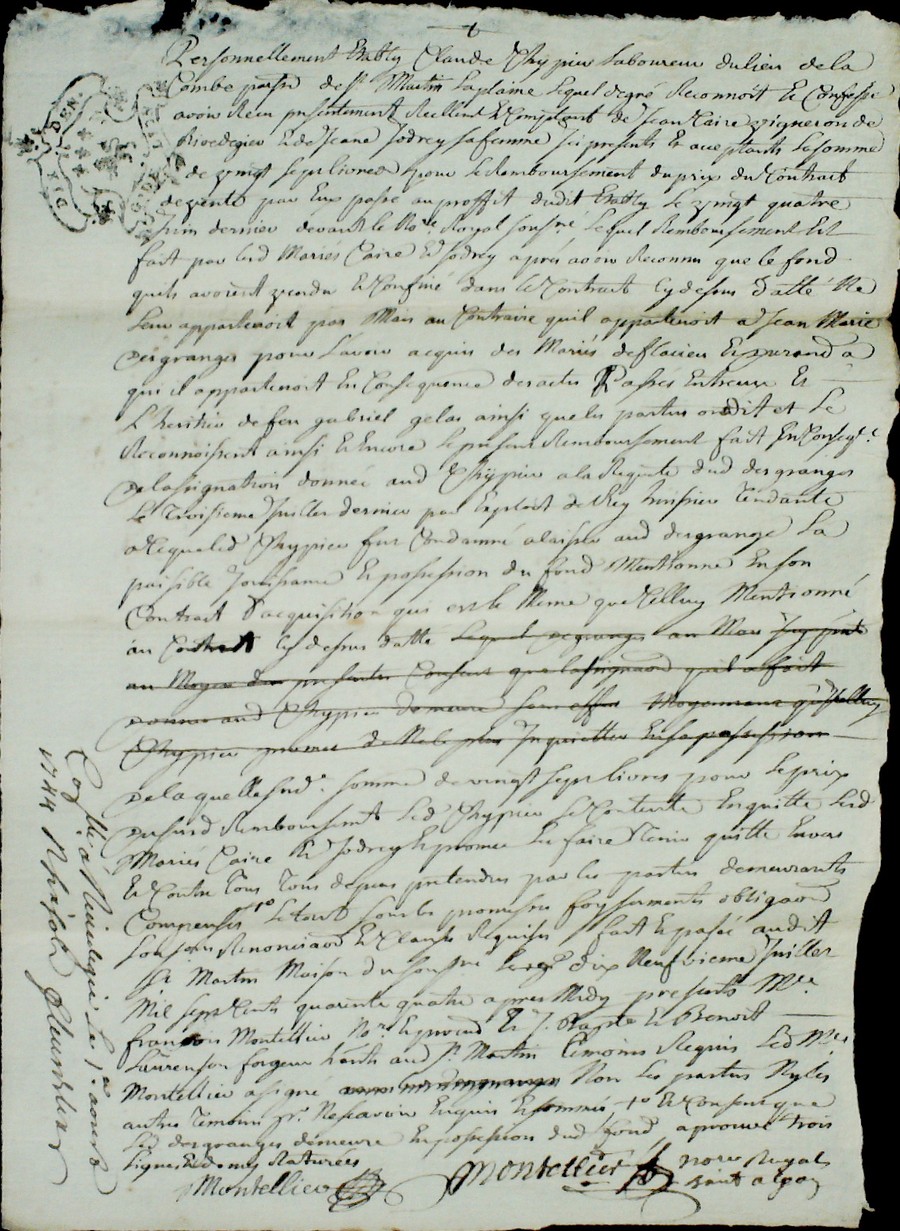 Personnellement Estably Claude Chypier Laboureur du lieu de la
Combe parsse de st Martin La plaine Lequel degré Reconnoit Et Confesse
avoir Receu presentement Reellemt Et Comptant de Jean Caire vigneron de
Et de Jeane Jodrey sa femme Icy presents Et acceptants La somme
de vingt sept Livres pour le Remboursement du prix du Contrat
de vente par Eux passé au proffit dudit Estably Le vingt quatre
Juin dernier devant le Nore Royal soussné Lequel Remboursement Est
fait par lesd Mariés Caire Et Jodrey aprés avoir Reconnu que le fond
quils avoient vendu Et Confiné dans le Contrat Cy dessus datté Ne
Leur appartenoit pas Mais au Contraire quil appartenoit a Jean Marie
Desgranges pour L'avoir acquis des Mariés
qui il appartenoit En Consequence des actes Passés Entreux Et
L'heritier de feu gabriel gelas ainsi que les parties ont dit et Le
Reconnoissent ainsi Et Encore le present Remboursement fait En Conseqce
de lassignation donnée aud Chypier a la Requete dud desgranges
Le Troisieme Juillet dernier par Exploit de Rey huissier Tendante
a Ce que led Chypier fut Condamné a laisser aud desgrange La
paisible Jouissance Et possession du fond Mentionné En son
Contrat d'acquisition qui est le Meme que Celluy Mentionné
au Contrat Cy dessus datté Lequel desgranges au Moyen
au Moyen des presentes Consent que lassignaon quil a fait
donner aud Chypier demeure sans effet Moyennant que Celluy
Chypier promet de Ne le plus Inquietter En sa possession
De la quelle susde somme de vingt sept livres pour Le prix
du susd Remboursemt Led Chypier Se Contente En quitte Lesd
Mariés Caire Et Jodrey Et promet Les faire Tenir quitte Envers
Et Contre Tous Tous depens pretendus par les parties demeurants
Compensés 1o Le tout sous les promesses sermens obligaons
soumissions Renonciaons Et Clauses Requises fait Et passé audit
st Martin Maison du soussné Le dix Neuvieme Juillet
Mil sept Cents quarante quatre apres Midy presents Mre
françois Montellier Nore Et Et J. Bapte Et Benoit
Laurenson forgeur habts aud st Martin Temoins Requis Led Mre
Montellier a signé Non Les parties Ny les
autres Temoins pr Ne scavoir Enquis Et sommés, 1o Et Consent que
Led desgranges demeure En possession dud fond aprouvé trois
Lignes Et demy Raturées
Montellier Montellier nore Royal
Conllé a Rivedegier Le 1er aoust
1744 Rx